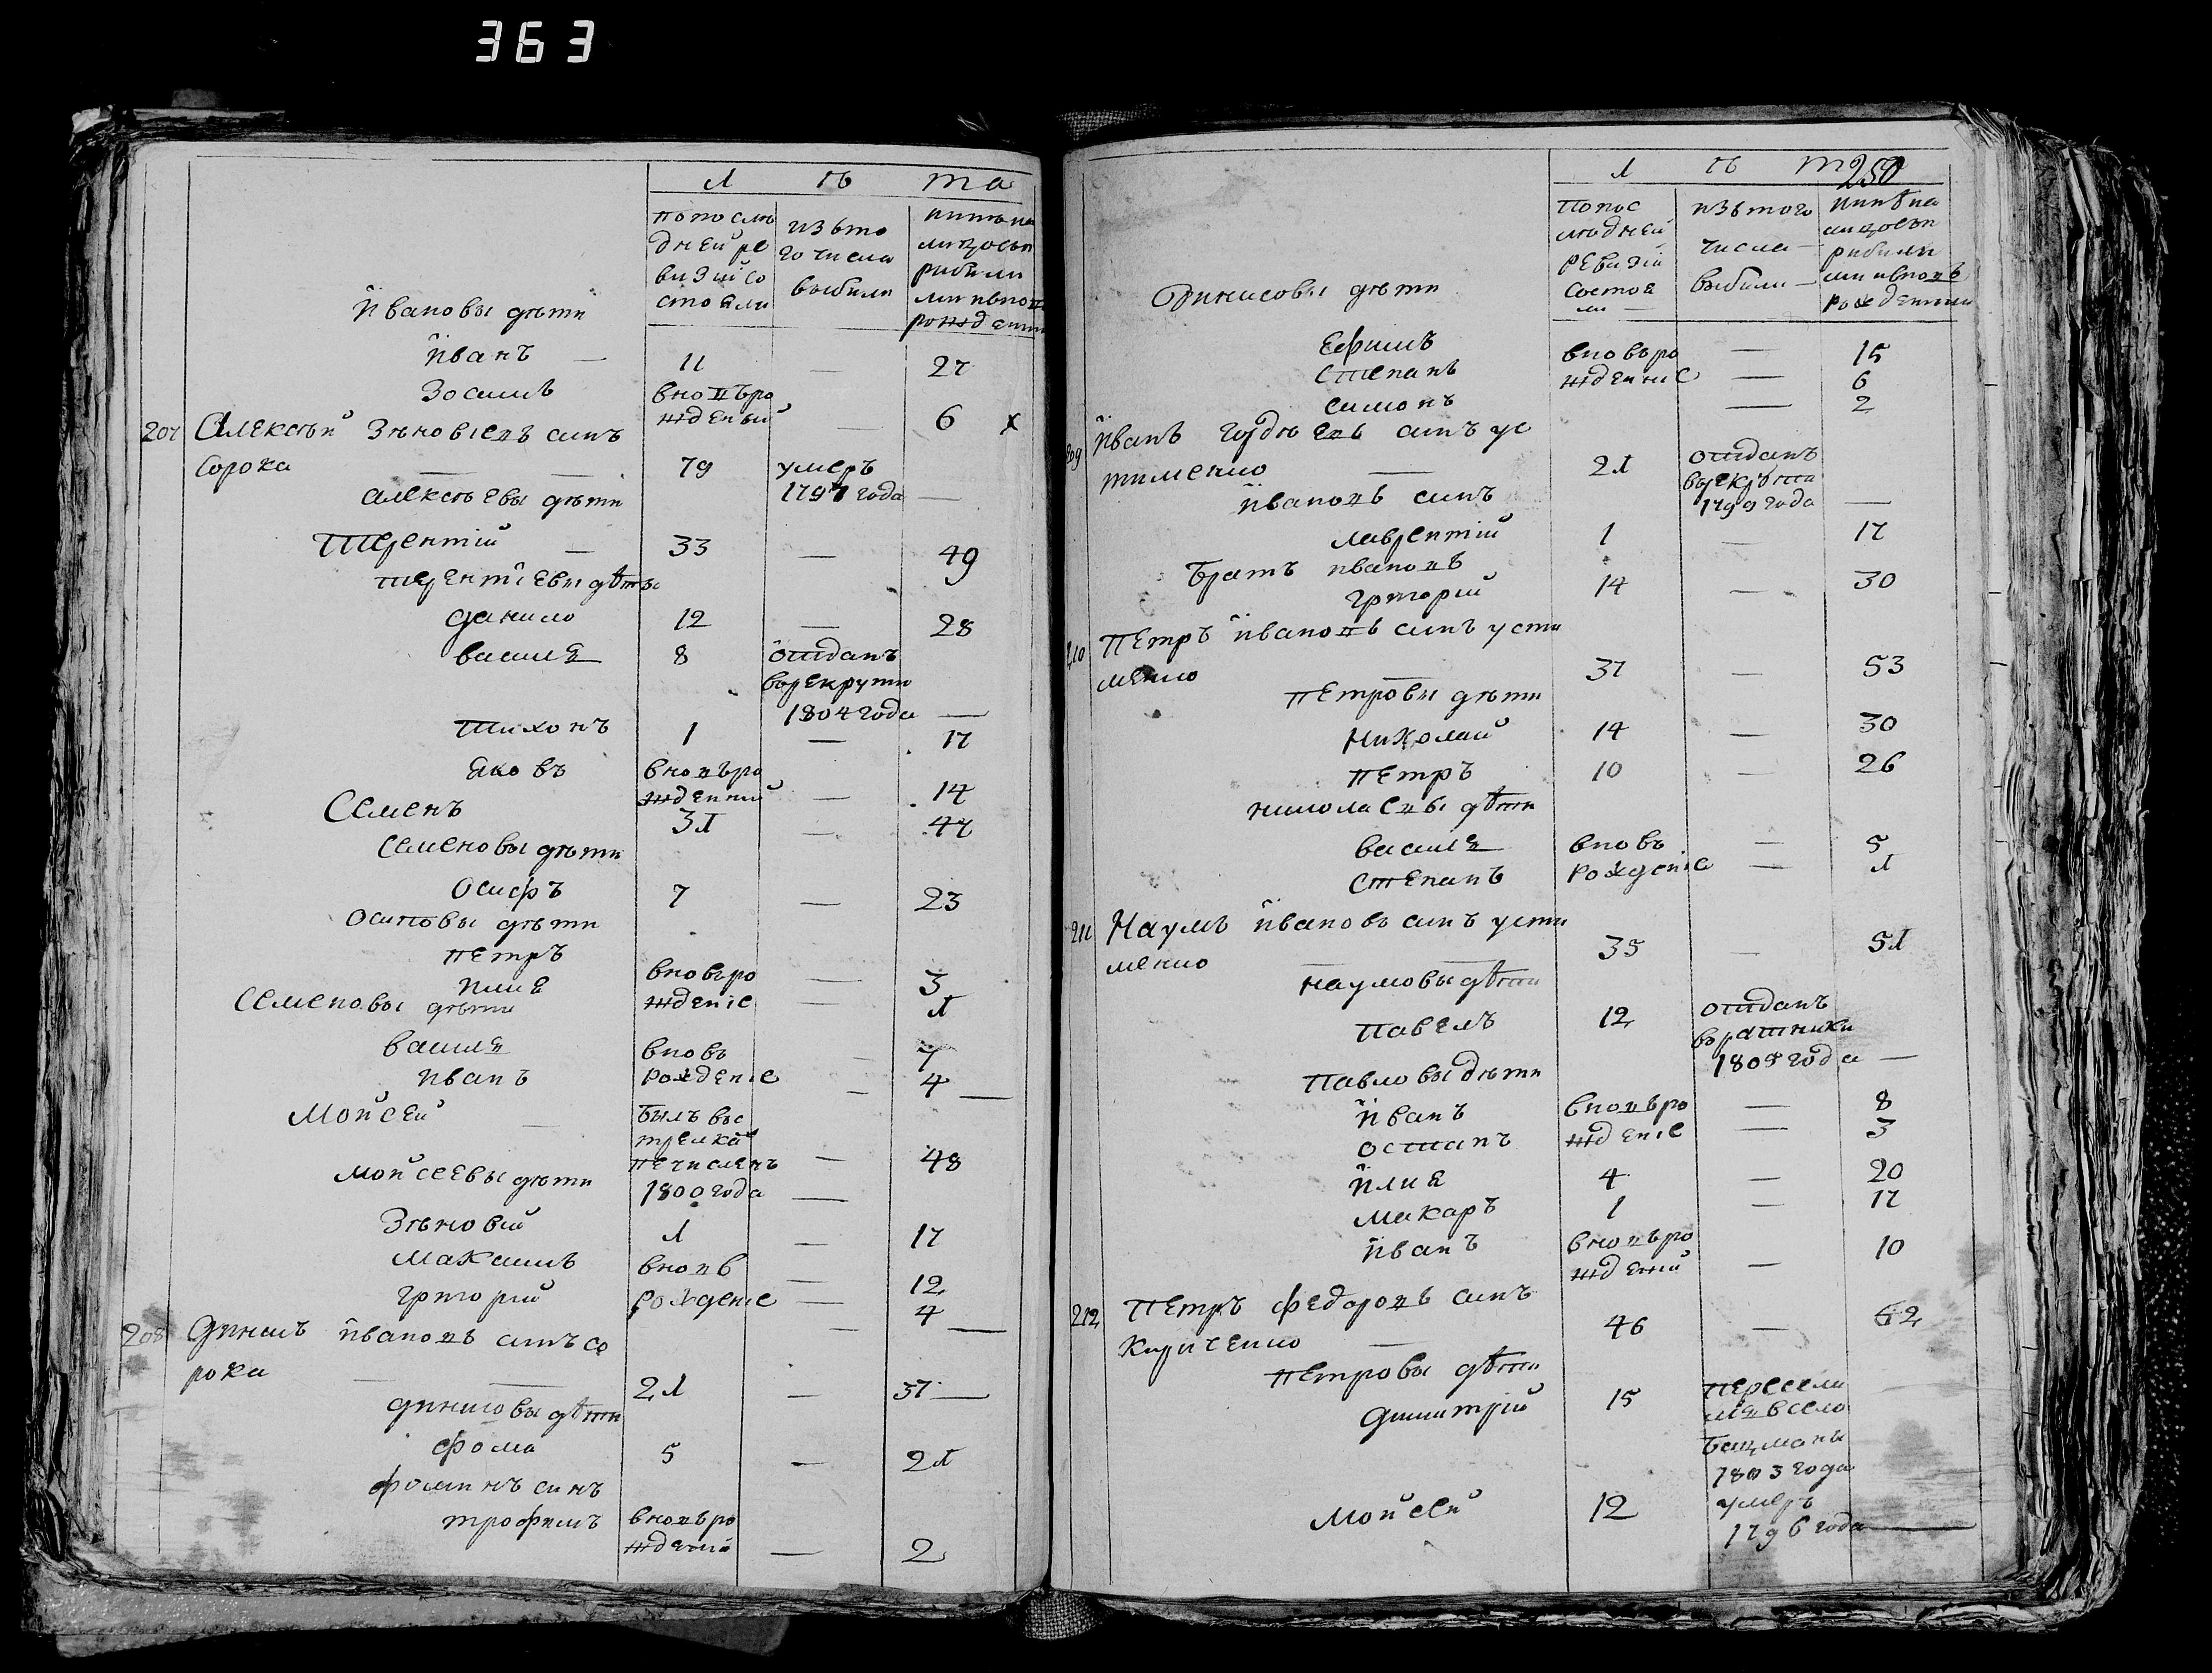 363
Л ѣ та
по посли
дней ре
визий со
стояли
изъ то
го числа
выбыли
рожденн
Ивановы дѣти
Иванъ — 11 — 27
Зосимъ вновъ ро
жденый — 6 х
207 Алексѣй Зѣновіевъ синъ
Сорока — — 79 умеръ
1797 года —
алексѣевы дѣти
Терентій — 33 — 49
терентіевы дѣты
данило 12 — 28
василя 8 отданъ
врекруты
1804 года —
Тихонъ 1 — 17
яковъ вновъ ро
жденний — 14
Семенъ 31 — 47
семеновы дѣти
Осифъ 7 — 23
осиповы дѣти
петръ
илия вновъ ро — 3
жденіе — 1
Семеновы дѣти
василя вновъ — 7
иванъ рожденіе — 4 —
Мойсей — былъ въ с
48
1800 года —
мойсеевы дѣти
Зѣновій 1 — 17
Макsимъ вновъ — 12
григорий рожденіе — 4 —
208 Динисъ ивановъ синъ со
рока — — 21 — 37 —
динисовы дѣти
фома 5 — 21
фоминъ синъ
трофимъ вновъ ро
жденій — 2
Л ѣ т 250
Попос
лидней
ревизіи
состоя
ли —
изътого
числа —
выбили —
рожденими
Динисовы дѣти
Ефимъ вновъ ро — 15
степанъ ждение — 6
симонъ — 2
209 Иванъ гордѣевъ синъ ус
тименко — 21 отданъ
врекрута
1799 года —
ивановъ синъ
лаврентій 1 — 17
братъ ивановъ
григорій 14 — 30
210 Петръ ивановъ синъ усти
менко — 37 — 53
петровы дѣти
николай 14 — 30
петръ 10 — 26
николаевы дѣти
василя вновъ — 5
степанъ рожденіе — 1
211 Наумъ ивановъ синъ усти
менко — — 35 — 51
наумовы дѣти
павелъ 12 отданъ
вратники
1808 года —
павловы дѣти
иванъ вновъ ро — 8
остапъ жденіе — 3
илия 4 — 20
макаръ 1 — 17
иванъ вновъ ро
ждений — 10
212 Петръ федоровъ синъ
Кириченко — 46 — 62
петровы дѣти
димитрій 15 пересели
лся всело
бацманы
1803 года
мойсей 12 умеръ
1796 года —